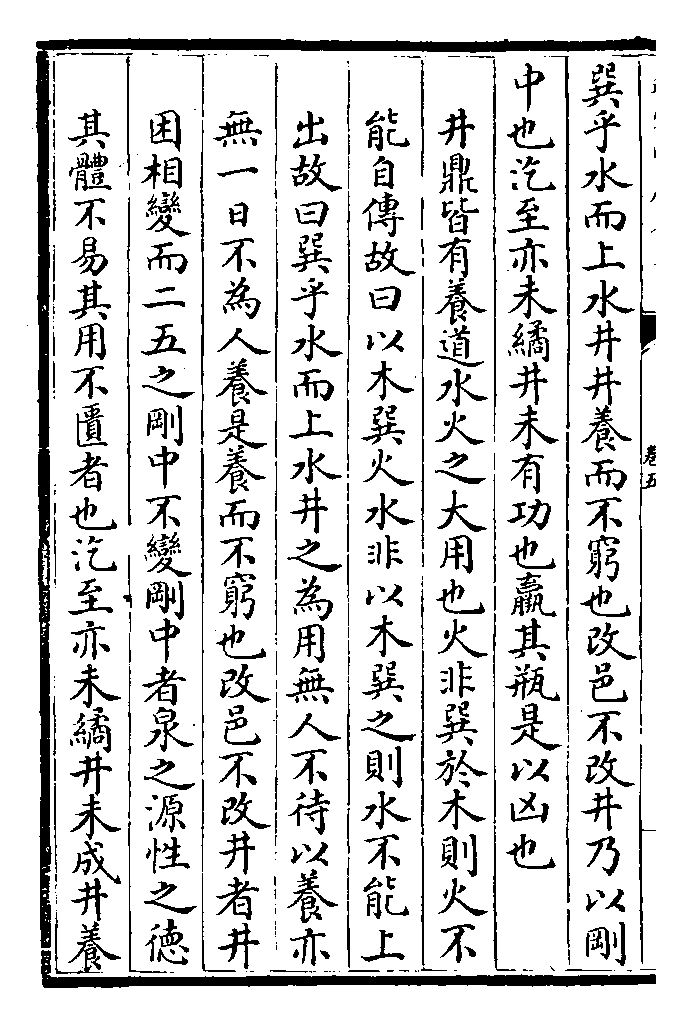 巽乎水而上水井井養而不窮也改邑不改井乃以剛
中也汔至亦未繘井未有功也羸其瓶是以凶也
井鼎皆有養道水火之大用也火非巽於木則火不
能自傳故曰以木巽火水非以木巽之則水不能上
出故曰巽乎水而上水井之為用無人不待以養亦
無一日不為人養是養而不窮也改邑不改井者井
困相變而二五之剛中不變剛中者泉之源性之德
其體不易其用不匱者也汔至亦未繘井未成井養
卷五